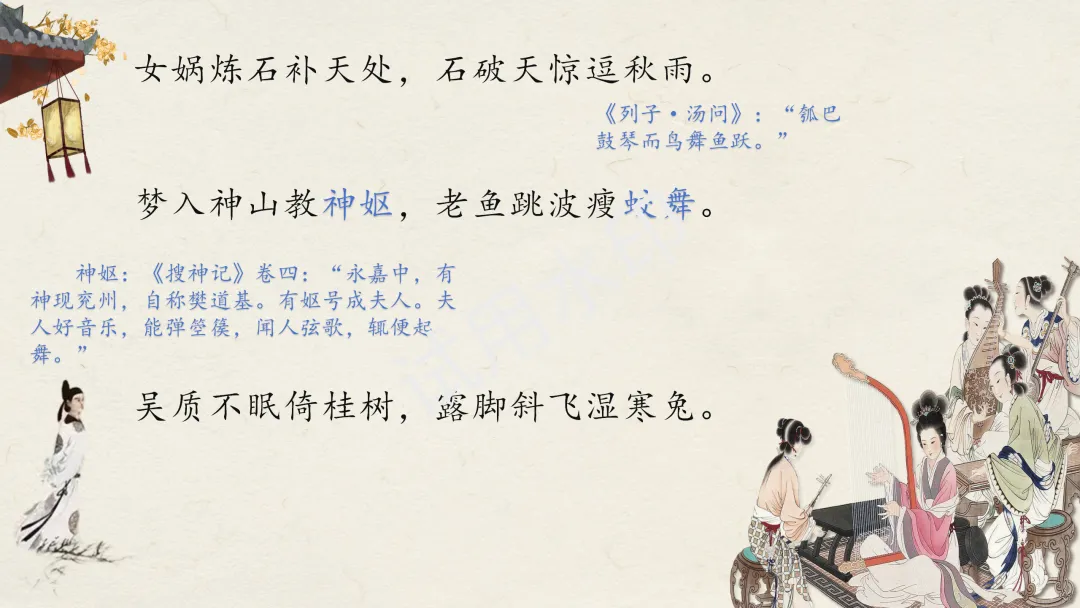 女娲炼石补天处，石破天惊逗秋雨。
《列子·汤问》：“瓠巴
鼓琴而鸟舞鱼跃。”
梦入神山教神妪，老鱼跳波瘦蛟舞。
神妪：《搜神记》卷四：“永嘉中，有
神现兖州，自称樊道基。有妪号成夫人。夫
人好音乐，能弹箜篌，闻人弦歌，辄便起
舞。”
吴质不眠倚桂树，露脚斜飞湿寒兔。